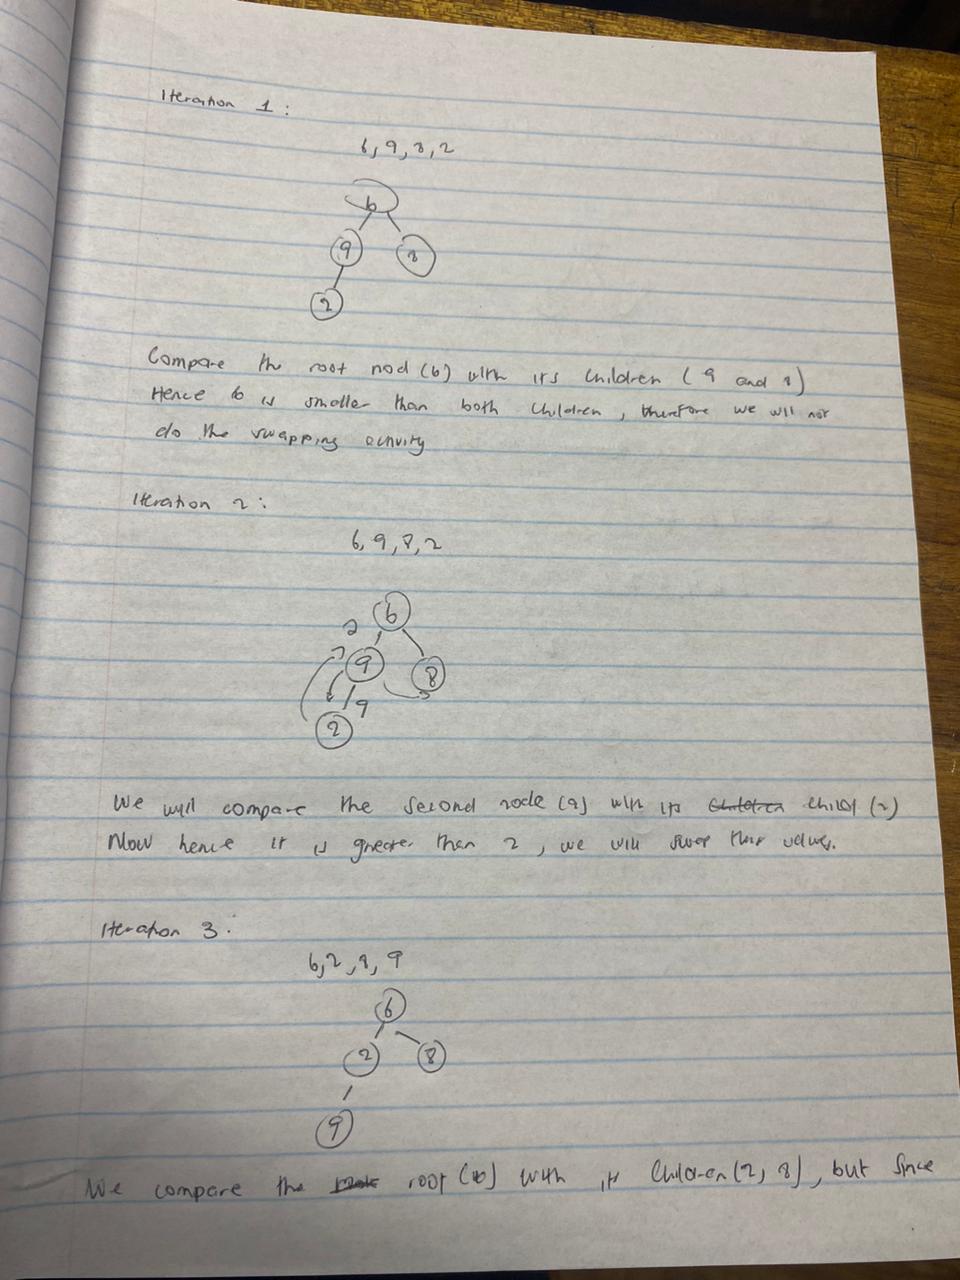 Iteration 1:
6, 9, 8, 2
6
9 8
2
Compare the root nod (6) with its children (9 and 8)
Hence 6 is smaller than both children, therefore we will not
do the swapping activity
Iteration 2:
6, 9, 8, 2
6
2
9 8
9
2
We will compare the second node (9) with its Children child (2)
Now hence it is greater than 2, we will swap their values.
Iteration 3:
6, 2, 8, 9
6
2 8
9
We compare the root (6) with its Children (2, 8), but since